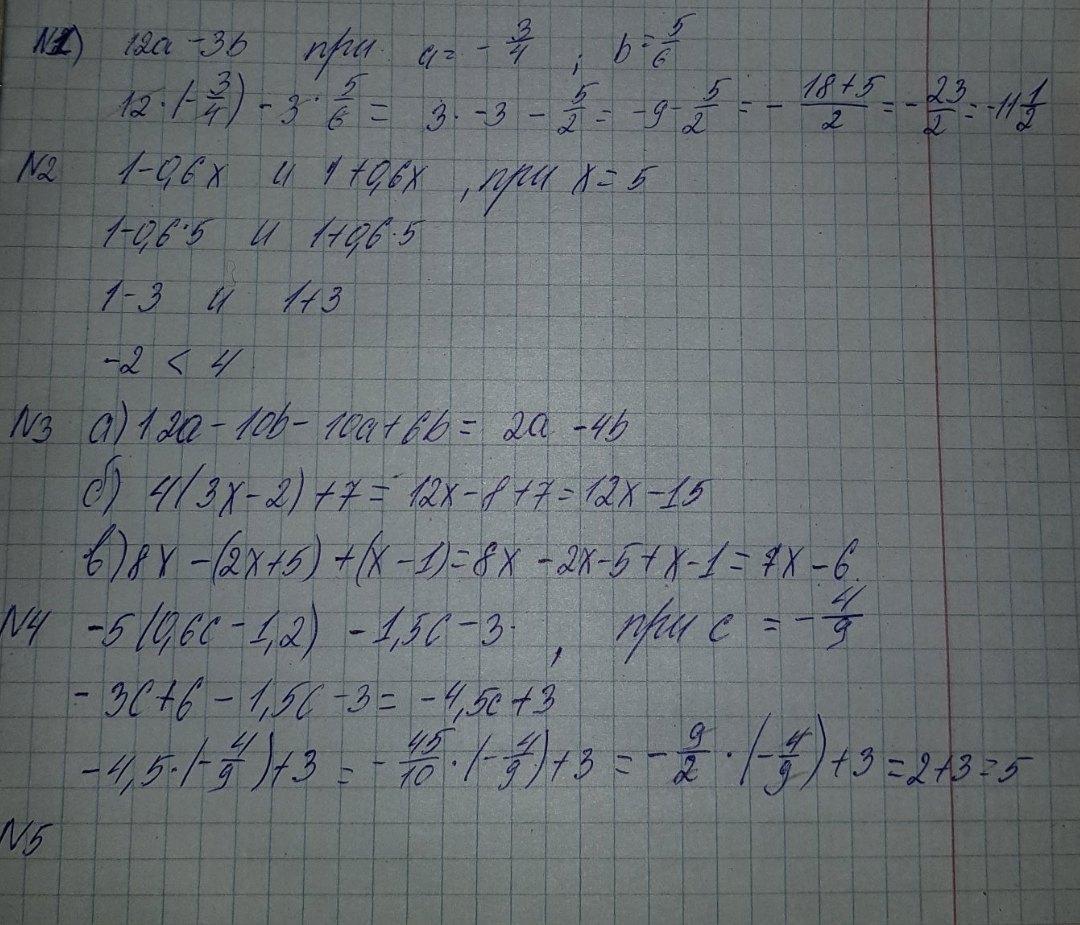 №1) 12a - 3b при a = - 3/4 ; b = 5/6
12·(-3/4) - 3·5/6 = 3·-3 - 5/2 = -9 - 5/2 = - 18+5/2 = - 23/2 = -11 1/2
№2 1-0,6x и 1+0,6x , при x = 5
1-0,6·5 и 1+0,6·5
1-3 и 1+3
-2 < 4
№3 а) 12a - 10b - 10a + 6b = 2a - 4b
б) 4(3x-2)+7 = 12x-8+7 = 12x-15
в) 8x - (2x+5) + (x-1) = 8x - 2x - 5 + x - 1 = 7x - 6
№4 -5(0,6c - 1,2) - 1,5c - 3 , при c = - 4/9
- 3c + 6 - 1,5c - 3 = -4,5c + 3
-4,5·(-4/9)+3 = - 45/10·(-4/9)+3 = - 9/2·(-4/9)+3 = 2+3 = 5
№5